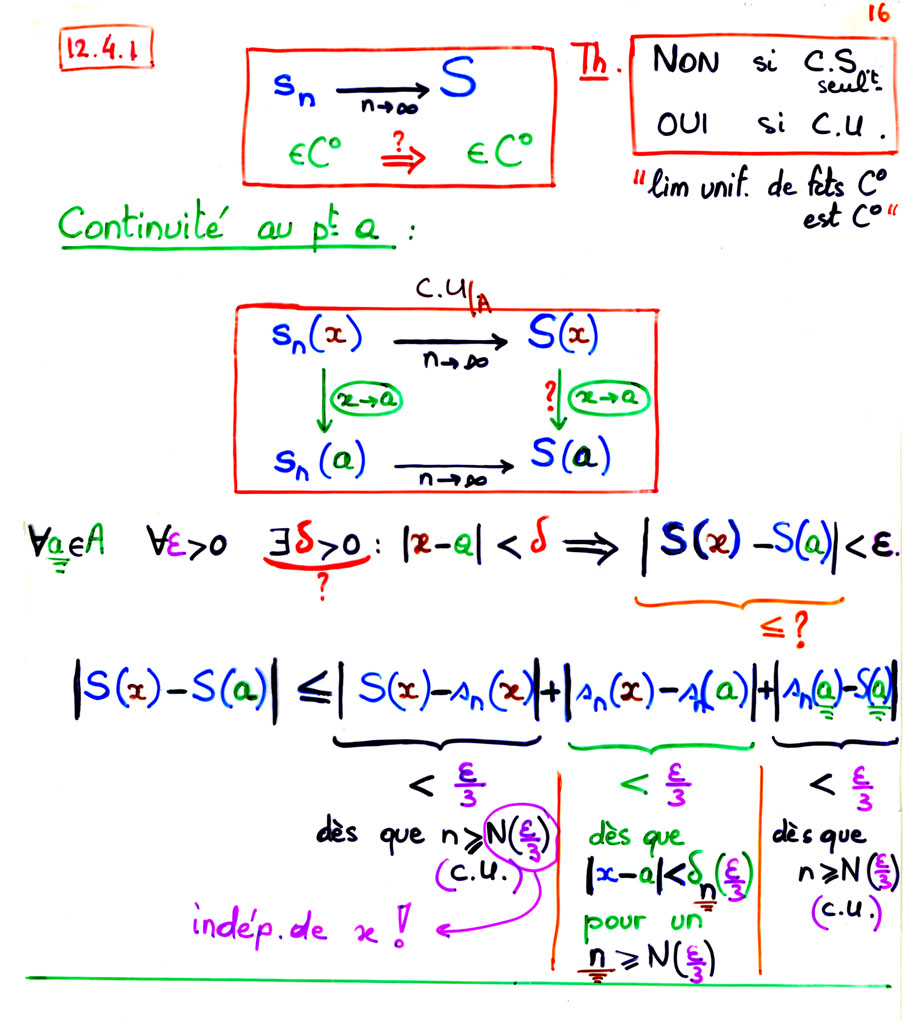 16
12.4.1
sₙ ⟶ S
n→∞
∈C° ?⟹ ∈C°
Th.
NON si C.S. seul.t
OUI si C.U.
"lim unif. de fcts C°
est C°"
Continuité au pt a :
C.U/A
sₙ(x) ⟶ S(x)
n→∞
x→a ? x→a
sₙ(a) ⟶ S(a)
n→∞
∀a∈A ∀ε>0 ∃δ>0 : |x-a| < δ ⟹ |S(x) - S(a)| < ε.
?
≤ ?
|S(x) - S(a)| ≤ |S(x) - sₙ(x)| + |sₙ(x) - sₙ(a)| + |sₙ(a) - S(a)|
< ε/3
dès que n ≥ N(ε/3)
(C.U.)
indép. de x !
< ε/3
dès que
|x-a| < δₙ(ε/3)
pour un
n ≥ N(ε/3)
< ε/3
dès que
n ≥ N(ε/3)
(C.U.)